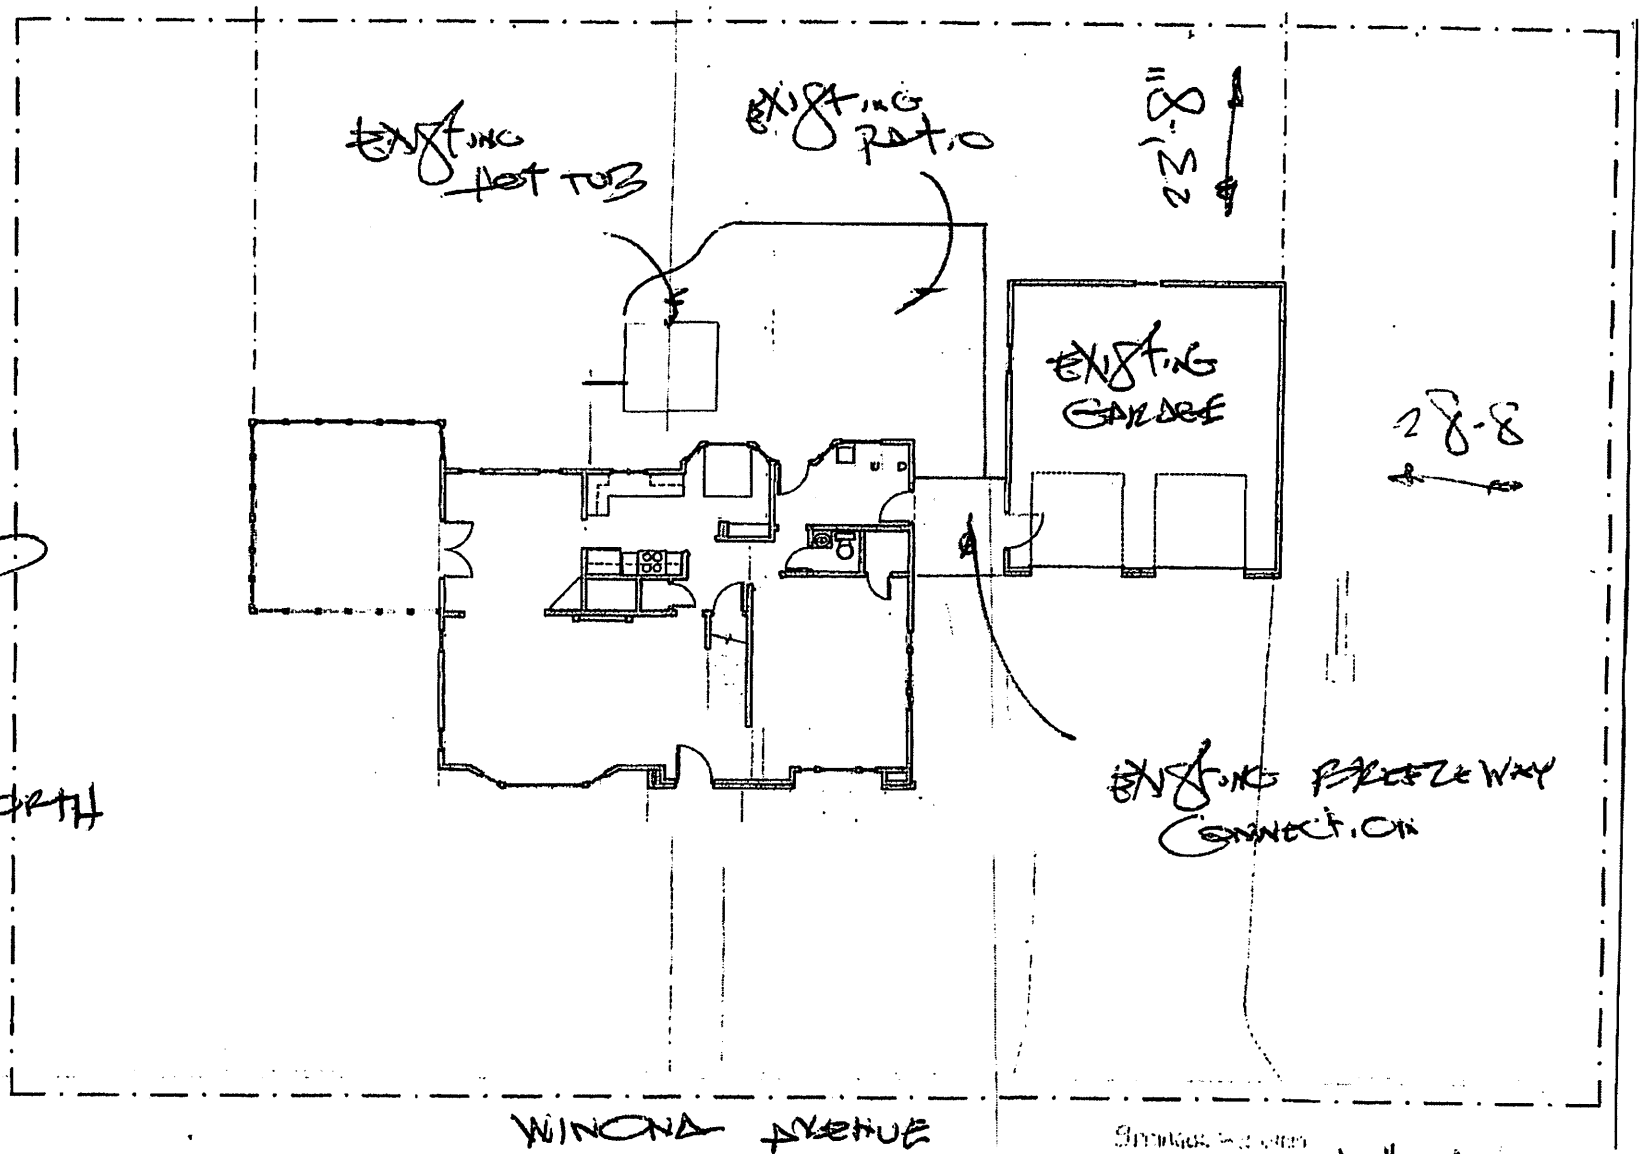 EXISTING
HOT TUB
EXISTING
PATIO
23'-8"
EXISTING
GARAGE
28-8
U D
EXISTING BREEZEWAY
CONNECTION
ORTH
WINONA AVENUE